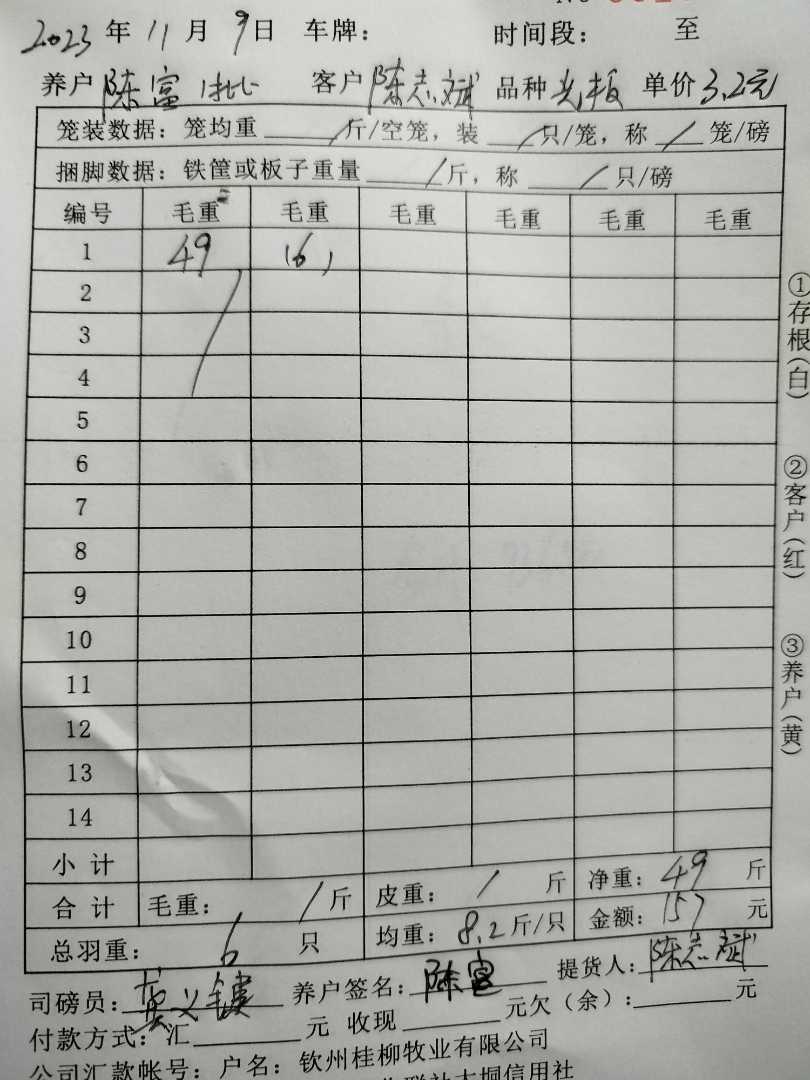 No
2023年11月9日 车牌: 时间段: 至
养户 陈富1批 客户 陈志斌 品种 光板 单价 3.2元
笼装数据: 笼均重 / 斤/空笼, 装 / 只/笼, 称 / 笼/磅
捆脚数据: 铁筐或板子重量 / 斤, 称 / 只/磅
编号 毛重 毛重 毛重 毛重 毛重 毛重
1 49 (6)
2
3
4
5
6
7
8
9
10
11
12
13
14
小计
合计 毛重: / 斤 皮重: / 斤 净重: 49 斤
总羽重: 6 只 均重: 8.2 斤/只 金额: 157 元
司磅员: 养户签名: 陈富 提货人: 陈志斌
付款方式: 汇 元 收现 元欠(余): 元
公司汇款帐号: 户名: 钦州桂柳牧业有限公司
信用社
①存根(白)
②客户(红)
③养户(黄)